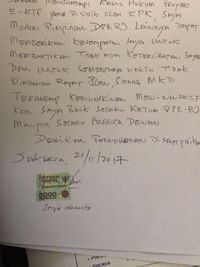 MENGHADAPI KASUS HUKUM PROYEK
E-KTP YANG DISIDIK OLEH KPK, SAYA
MOHON PIMPINAN DPR RI LAINNYA DAPAT
MEMBERIKAN KESEMPATAN SAYA UNTUK
MEMBUKTIKAN TIDAK ADA KETERLIBATAN SAYA
DAN UNTUK SEMENTARA WAKTU TIDAK
DIADAKAN RAPAT PLENO SIDANG MKD
TERHADAP KEMUNGKINAN MENONAKTIF-
KAN SAYA BAIK SELAKU KETUA DPR-RI
MAUPUN SELAKU ANGGOTA DEWAN.
DEMIKIAN PERMOHONAN DISAMPAIKAN
JAKARTA, 21/11/2017
METERAI
TEMPEL
6000
SETYA NOVANTO